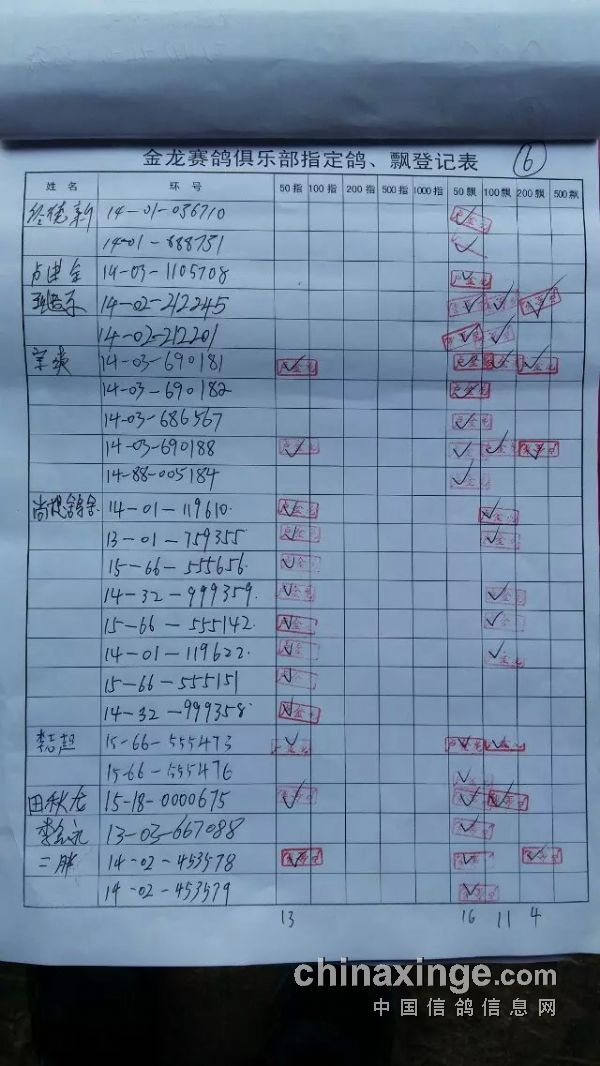 金龙赛鸽俱乐部指定鸽、飘登记表 ⑥
姓名 环号 50指 100指 200指 500指 1000指 50飘 100飘 200飘 500飘
14-01-036710
14-01-888751
卢建全 14-03-1105708
14-02-212245
14-02-212201
14-03-690181
14-03-690182
14-03-686567
14-03-690188
14-88-005184
14-01-119610
13-01-759355
15-66-555656
14-32-999359
15-66-555142
14-01-119622
15-66-555151
14-32-999358
李志超 15-66-555473
15-66-555476
田秋龙 15-18-0000675
13-03-667088
二胖 14-02-453578
14-02-453579
13 16 11 4
chinaxinge.com
中国信鸽信息网